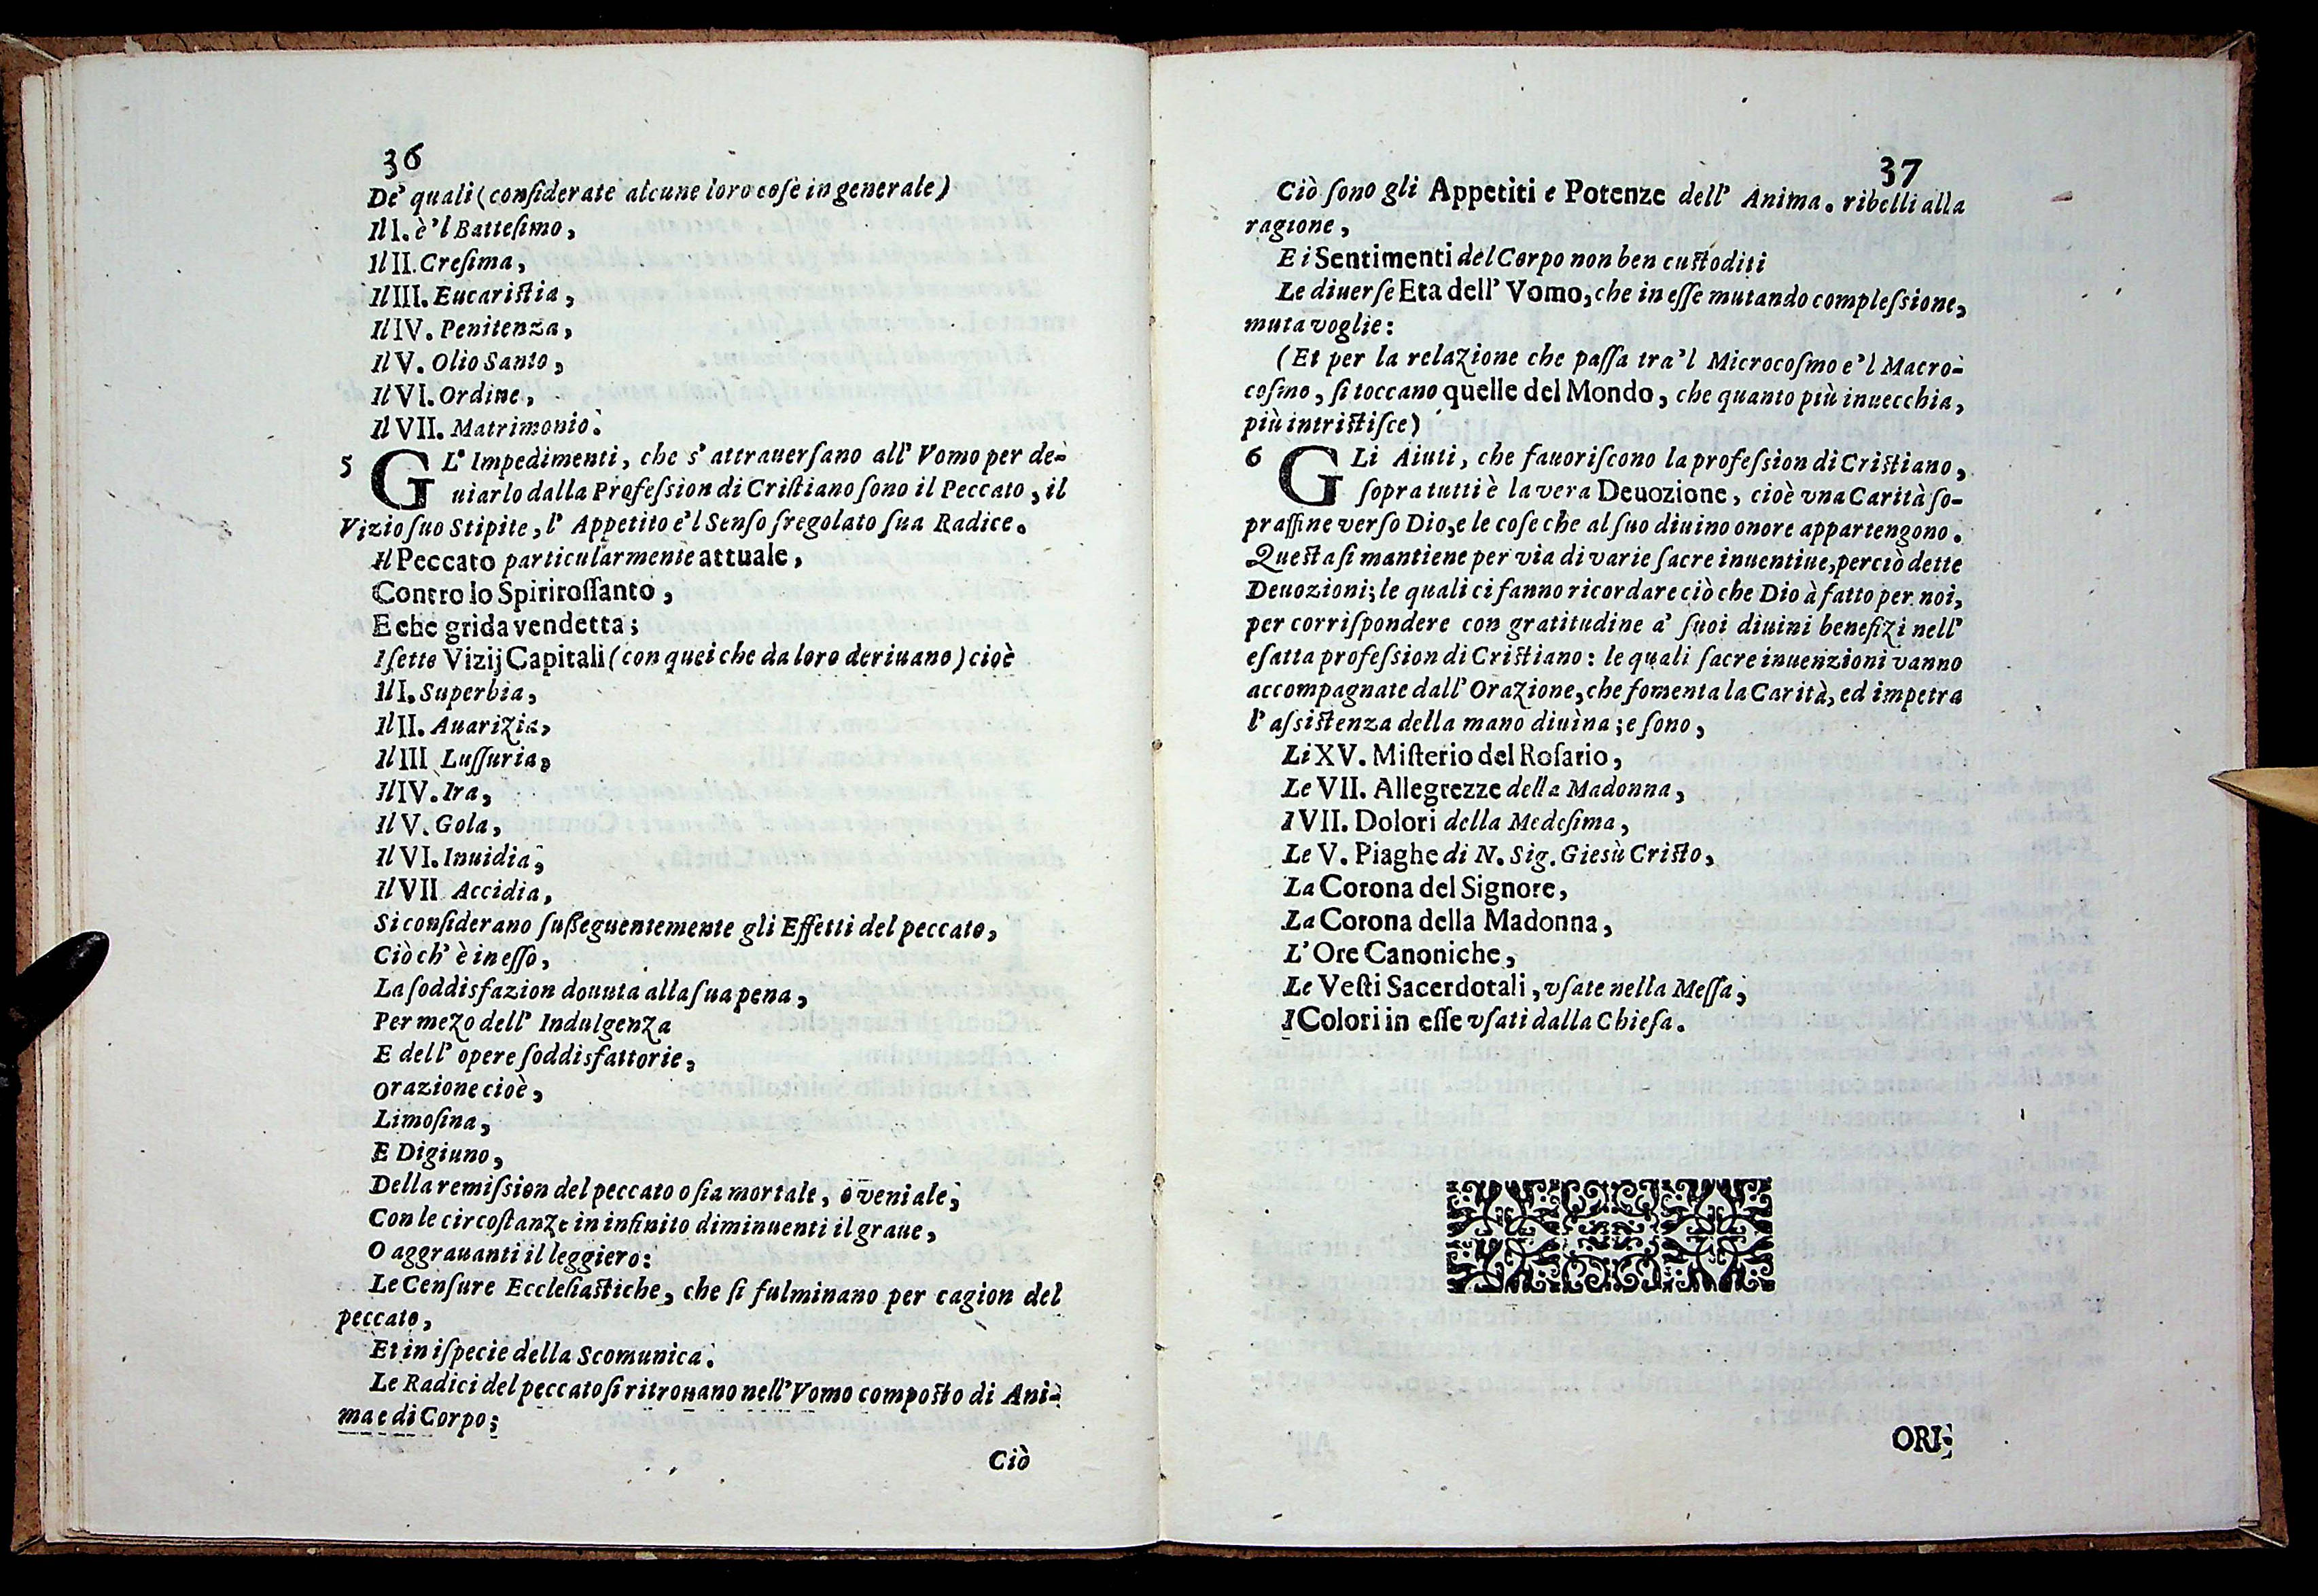 36
De' quali (conſiderate alcune loro coſe in generale)
Il I. è'l Batteſimo,
Il II. Creſima,
Il III. Eucariſtia,
Il IV. Penitenza,
Il V. Olio Santo,
Il VI. Ordine,
Il VII. Matrimonio.
5 GL' Impedimenti, che s' attrauerſano all' Vomo per de-
uiarlo dalla Profeſsion di Criſtiano ſono il Peccato, il
Vizio ſuo Stipite, l' Appetito e'l Senſo ſregolato ſua Radice.
Il Peccato particularmente attuale,
Contro lo Spiriroſſanto,
E che grida vendetta;
I ſette Vizij Capitali (con quei che da loro deriuano) cioè
Il I. Superbia,
Il II. Auarizia,
Il III Luſſuria,
Il IV. Ira,
Il V. Gola,
Il VI. Inuidia,
Il VII Accidia,
Si conſiderano ſuſſeguentemente gli Effetti del peccato,
Ciò ch' è in eſſo,
La ſoddisfazion douuta alla ſua pena,
Per mezo dell' Indulgenza
E dell' opere ſoddisfattorie,
Orazione cioè,
Limoſina,
E Digiuno,
Della remiſsion del peccato o ſia mortale, o veniale,
Con le circoſtanze in infinito diminuenti il graue,
O aggrauanti il leggiero:
Le Cenſure Eccleſiaſtiche, che ſi fulminano per cagion del
peccato,
Et in iſpecie della Scomunica.
Le Radici del peccato ſi ritrouano nell' Vomo compoſto di Ani-
ma e di Corpo;
Ciò
37
Ciò ſono gli Appetiti e Potenze dell' Anima. ribelli alla
ragione,
E i Sentimenti del Corpo non ben cuſtoditi
Le diuerſe Eta dell' Vomo, che in eſſe mutando compleſsione,
muta voglie:
(Et per la relazione che paſſa tra'l Microcoſmo e'l Macro-
coſmo, ſi toccano quelle del Mondo, che quanto più inuecchia,
più intriſtiſce)
6 GLi Aiuti, che fauoriſcono la profeſsion di Criſtiano,
ſopra tutti è la vera Deuozione, cioè vna Carità ſo-
praffine verſo Dio, e le coſe che al ſuo diuino onore appartengono.
Queſta ſi mantiene per via di varie ſacre inuentiue, perciò dette
Deuozioni; le quali ci fanno ricordare ciò che Dio à fatto per noi,
per corriſpondere con gratitudine a' ſuoi diuini benefizi nell'
eſatta profeſsion di Criſtiano: le quali ſacre inuenzioni vanno
accompagnate dall' Orazione, che fomenta la Carità, ed impetra
l' aſsiſtenza della mano diuina; e ſono,
Li XV. Miſterio del Roſario,
Le VII. Allegrezze della Madonna,
I VII. Dolori della Medeſima,
Le V. Piaghe di N. Sig. Gieſù Criſto,
La Corona del Signore,
La Corona della Madonna,
L' Ore Canoniche,
Le Veſti Sacerdotali, vſate nella Meſſa,
I Colori in eſſe vſati dalla Chieſa.
ORI-